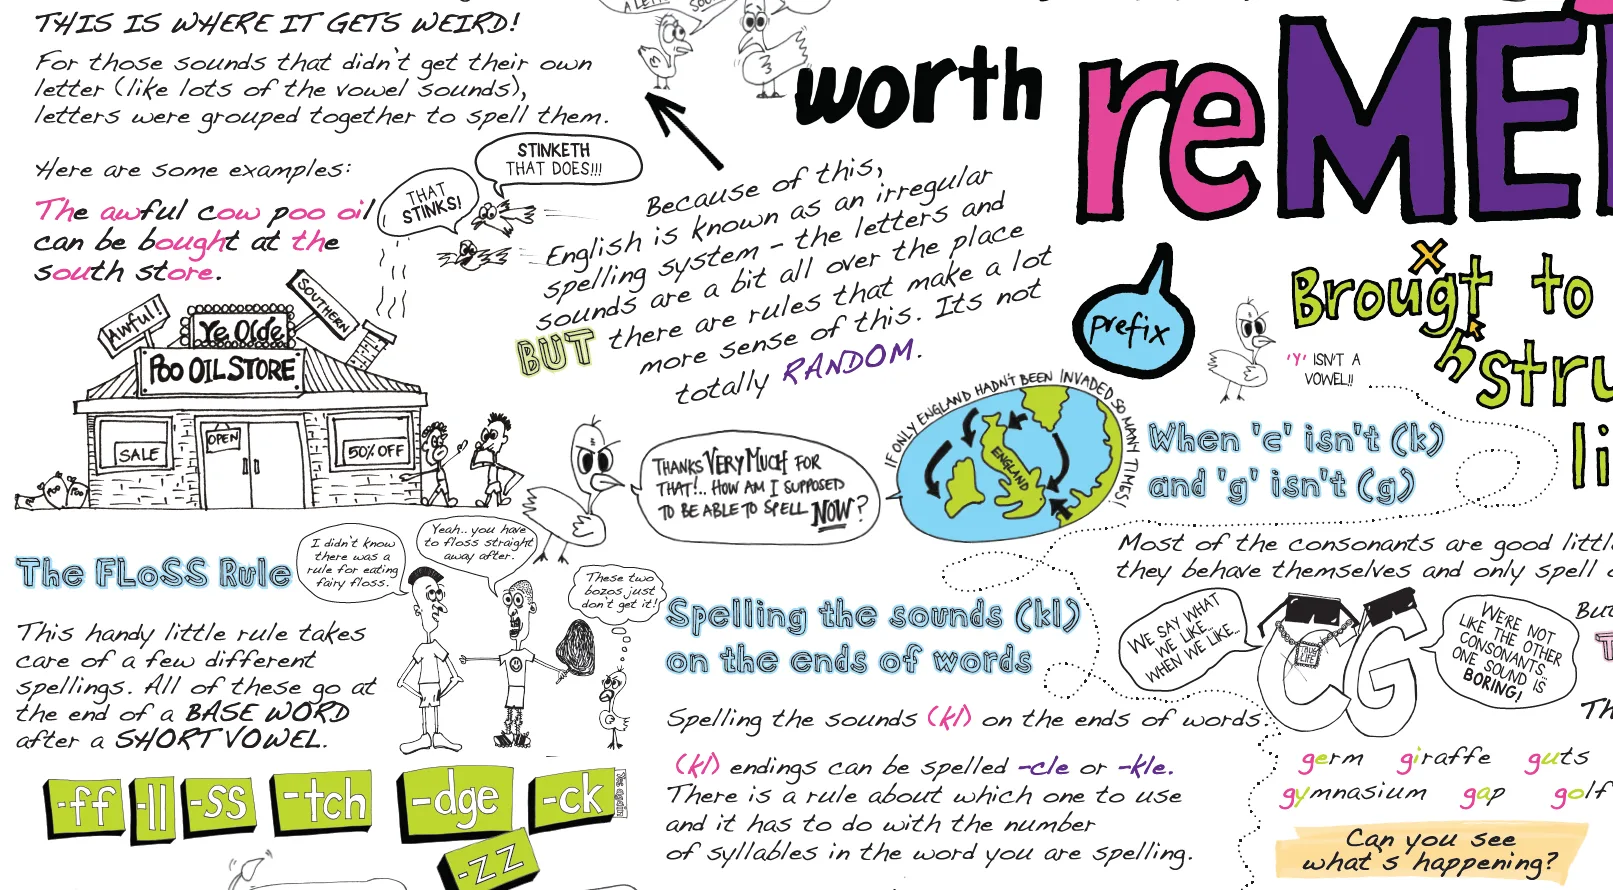 THIS IS WHERE IT GETS WEIRD!
For those sounds that didn't get their own
letter (like lots of the vowel sounds),
letters were grouped together to spell them.
Here are some examples:
The awful cow poo oil
can be bought at the
south store.
THAT
STINKS!
STINKETH
THAT DOES!!!
Awful!
Ye Olde
SOUTHERN
POO OIL STORE
OPEN
SALE
50% OFF
worth
reME
Because of this,
English is known as an irregular
spelling system - the letters and
sounds are a bit all over the place
BUT there are rules that make a lot
more sense of this. Its not
totally RANDOM.
prefix
Brougt to
h
stru
li
'Y' ISN'T A
VOWEL!!
THANKS VERY MUCH FOR
THAT!.. HOW AM I SUPPOSED
TO BE ABLE TO SPELL NOW?
IF ONLY ENGLAND HADN'T BEEN INVADED SO MANY TIMES!
ENGLAND
When 'c' isn't (k)
and 'g' isn't (g)
Most of the consonants are good littl
they behave themselves and only spell
WE SAY WHAT
WE LIKE...
WHEN WE LIKE...
THUG
LIFE
WE'RE NOT
LIKE THE OTHER
CONSONANTS..
ONE SOUND IS
BORING!
Bu
Th
germ giraffe guts
gymnasium gap golf
Can you see
what's happening?
The FLoSS Rule
I didn't know
there was a
rule for eating
fairy floss.
Yeah.. you have
to floss straight
away after.
These two
bozos just
don't get it!
This handy little rule takes
care of a few different
spellings. All of these go at
the end of a BASE WORD
after a SHORT VOWEL.
-ff -ll -ss -tch -dge -ck
-zz
Spelling the sounds (kl)
on the ends of words
Spelling the sounds (kl) on the ends of words.
(kl) endings can be spelled -cle or -kle.
There is a rule about which one to use
and it has to do with the number
of syllables in the word you are spelling.